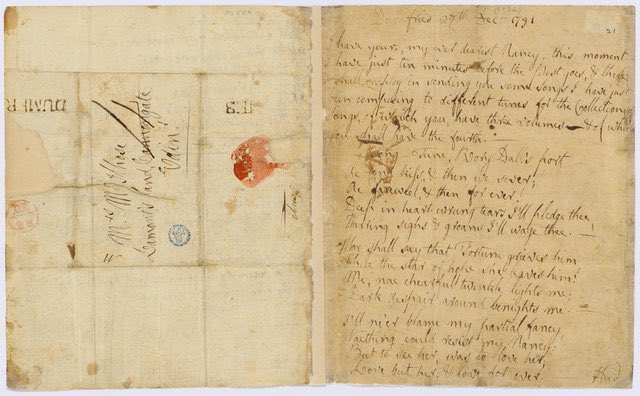 DUMFR
IES
Mrs
Edinr
Dumfries 27th Decr 1791
21
have yours, my ever dearest Nancy, this moment
have just ten minutes before the Post goes, & these
shall employ in sending you some songs I have just
een composing to different tunes for the Collection of
ongs, of which you have three volumes — & of which
you shall have the fourth. —
Song — Tune, Rory Dall's port
kiss, & then we sever;
Ae fareweel, & then for ever!
Deep in heart-wrung tears I'll pledge thee,
Warring sighs & groans I'll wage thee. —
Wha shall say that Fortune grieves him
While the star of hope she leaves him:
Me, nae chearful twinkle lights me;
Dark despair around benights me. —
I'll ne'er blame my partial fancy,
Naething could resist my Nancy:
But to see her, was to love her;
Love but her, & love for ever. —